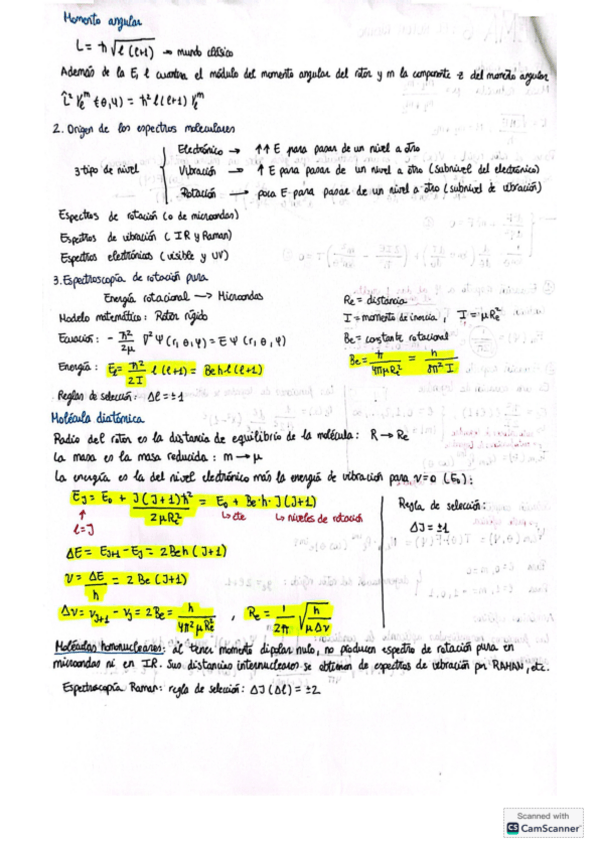 Momento angular
L = ħ √l(l+1) → mundo clásico
Además de la E, l cuantiza el módulo del momento angular del rotor y m la componente z del momento angular
L̂² Yₗᵐ (θ,φ) = ħ² l(l+1) Yₗᵐ
2. Origen de los espectros moleculares
3 tipo de nivel
Electrónico → ↑↑ E para pasar de un nivel a otro
Vibración → ↑ E para pasar de un nivel a otro (subnivel del electrónico)
Rotación → poca E para pasar de un nivel a otro (subnivel de vibración)
Espectros de rotación (o de microondas)
Espectros de vibración (IR y Raman)
Espectros electrónicos (visible y UV)
3. Espectroscopía de rotación pura
Energía rotacional → Microondas
Modelo matemático: Rotor rígido
Ecuación: - ħ²/2μ ∇² Ψ(r,θ,φ) = E Ψ(r,θ,φ)
Energía: Eₗ = ħ²/2I l(l+1) = Be h l(l+1)
Reglas de selección: Δl = ±1
Re = distancia
I = momento de inercia, I = μRe²
Be = constante rotacional
Be = ħ/4πμRe² = h/8π²I
Molécula diatómica
Radio del rotor es la distancia de equilibrio de la molécula: R → Re
La masa es la masa reducida: m → μ
La energía es la del nivel electrónico más la energía de vibración para v=0 (E₀):
E_J = E₀ + J(J+1)ħ²/2μRe² = E₀ + Be·h·J(J+1)
↑
l=J
↳ cte
↳ niveles de rotación
ΔE = E_J+1 - E_J = 2Beh(J+1)
ν = ΔE/h = 2Be(J+1)
Δν = ν_J+1 - ν_J = 2Be = h/4π²μRe² , Re = 1/2π √h/μΔν
Regla de selección:
ΔJ = ±1
Moléculas homonucleares: al tener momento dipolar nulo, no producen espectro de rotación pura en
microondas ni en IR. Sus distancias internucleares se obtienen de espectros de vibración por RAMAN, etc.
Espectroscopía Raman: regla de selección: ΔJ (Δl) = ±2
Scanned with
CS CamScanner